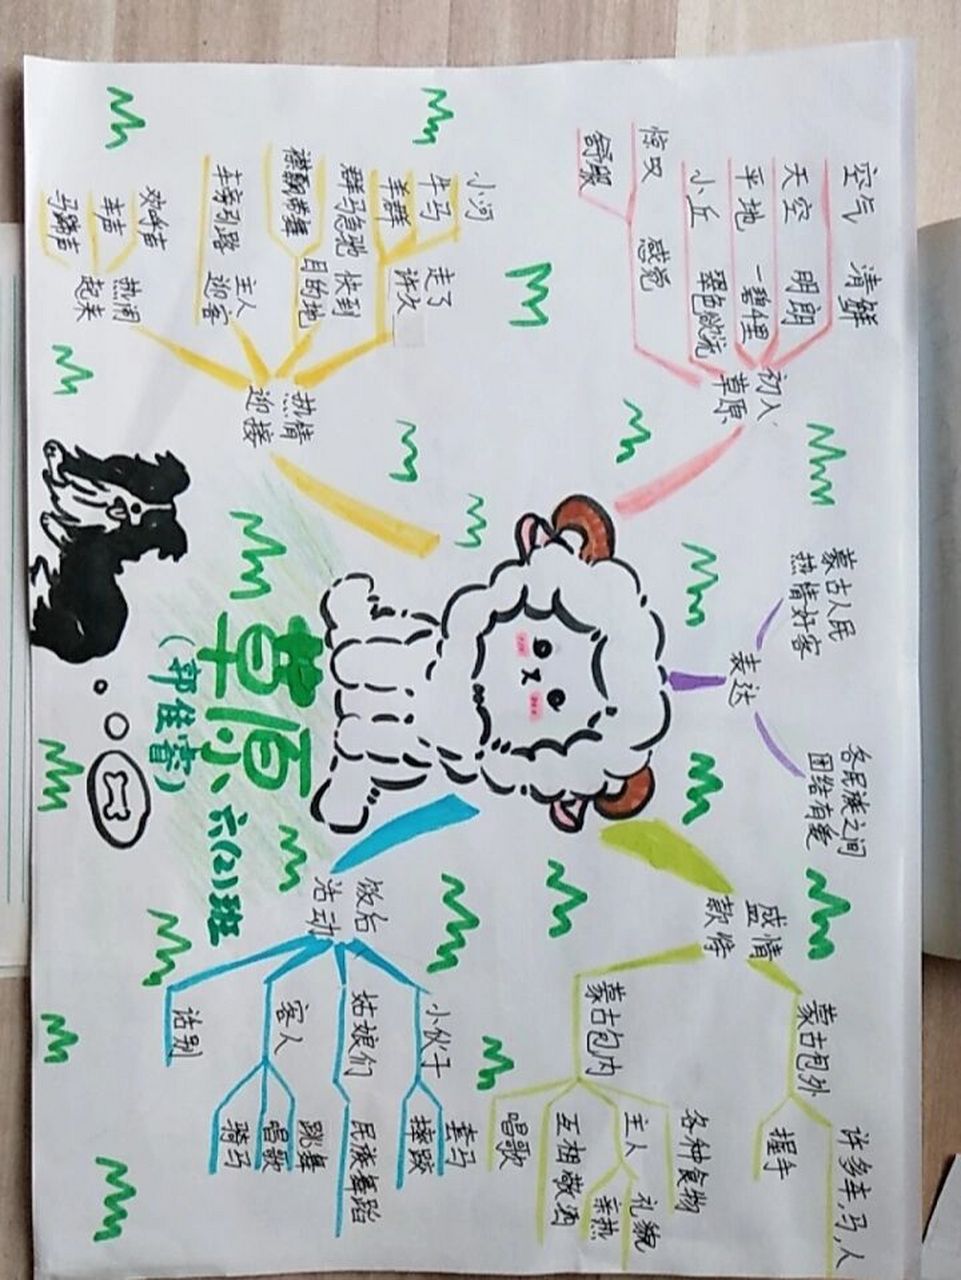 草原
(郭佳蕾)
六(2)班
初入
草原
空气 清鲜
天空 明朗
平地 一碧千里
小丘 翠色欲流
感觉
惊叹
舒服
热情
迎接
走了
许久
小河
牛马
羊群
快到
目的地
群马疾驰
襟飘带舞
主人
迎客
车旁引路
热闹
起来
欢呼声
车声
马蹄声
表达
蒙古人民
热情好客
各民族之间
团结有爱
盛情
款待
蒙古包外
许多车,马,人
握手
蒙古包内
各种食物
主人
礼貌
亲热
互相敬酒
唱歌
饭后
活动
小伙子
套马
摔跤
姑娘们
民族舞蹈
客人
跳舞
唱歌
骑马
话别